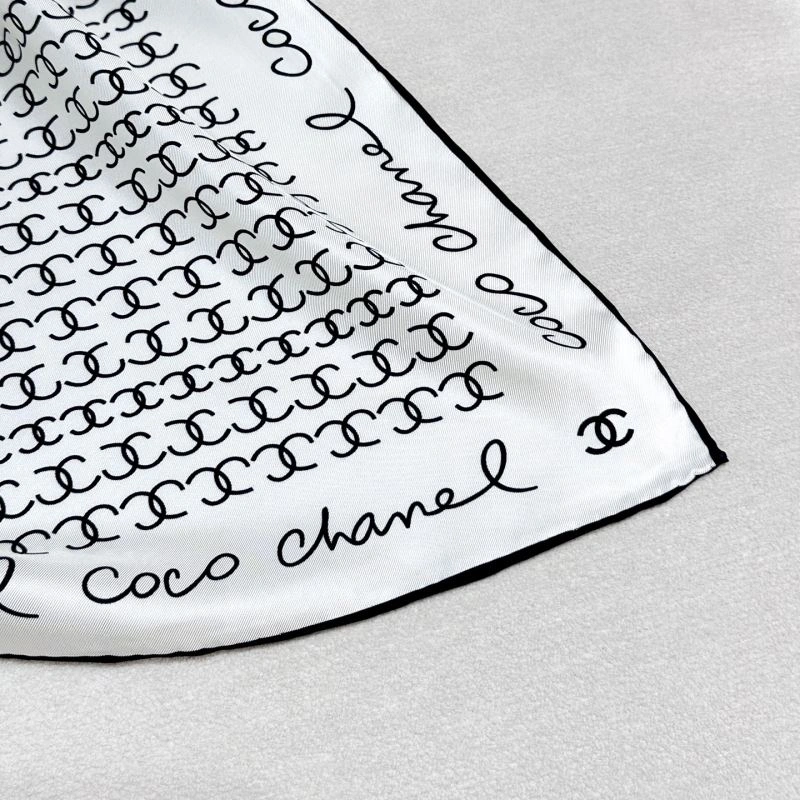 coco
chanel
coco
coco chanel